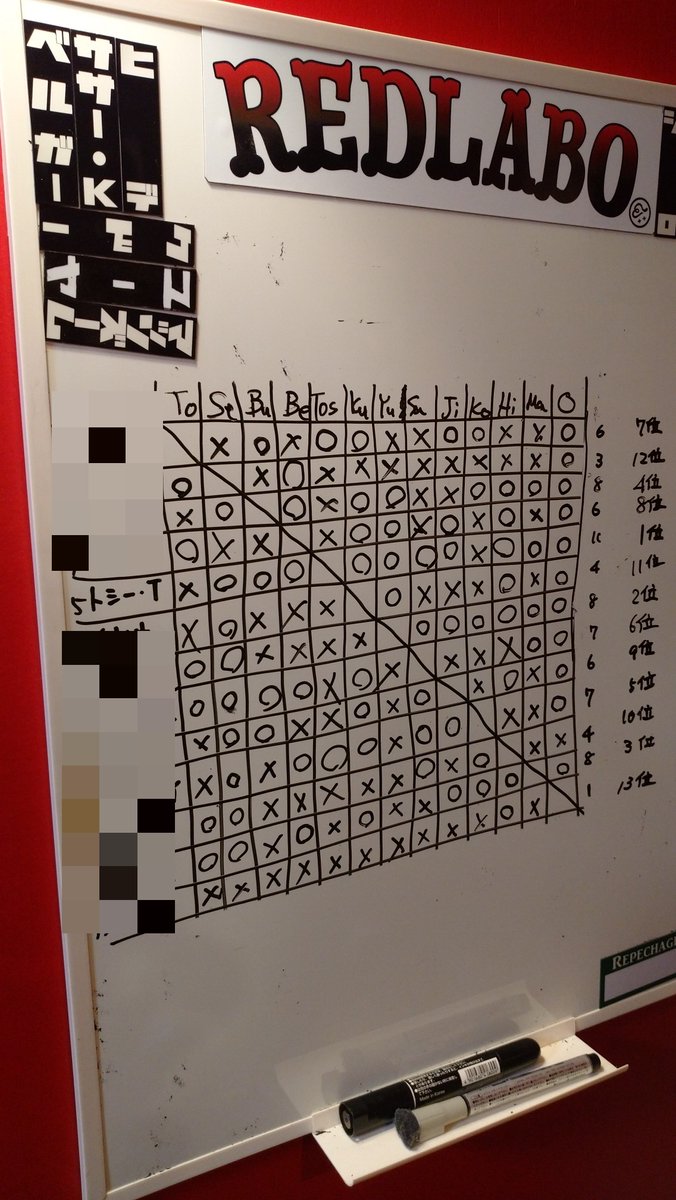 ベルガー
ササー・K
ヒデ
REDLABO
To Se Bu Be Tos Ku Yu Su Ji Ko Hi Ma O
× ○ × ○ ○ × × ○ ○ × × ○ 6 7位
○ × ○ × × × × × × × × ○ 3 12位
× ○ ○ × ○ ○ × × ○ ○ ○ ○ 8 4位
○ × × × ○ ○ × ○ × ○ × ○ 6 8位
5トミー・T × ○ ○ ○ ○ ○ ○ ○ × ○ ○ ○ 10 1位
× ○ × × × ○ × × × ○ × ○ 4 11位
○ ○ × × × × ○ ○ ○ ○ ○ ○ 8 2位
○ ○ ○ ○ × ○ × × × × ○ ○ 7 6位
× ○ ○ × × ○ × ○ × ○ × ○ 6 9位
× ○ × ○ ○ ○ × ○ ○ × × ○ 7 5位
○ ○ × × × × × ○ × ○ × × 4 10位
○ ○ × ○ × ○ × × ○ ○ ○ ○ 8 3位
× × × × × × × × × × ○ × 1 13位
REPECHAGE
Made in Korea